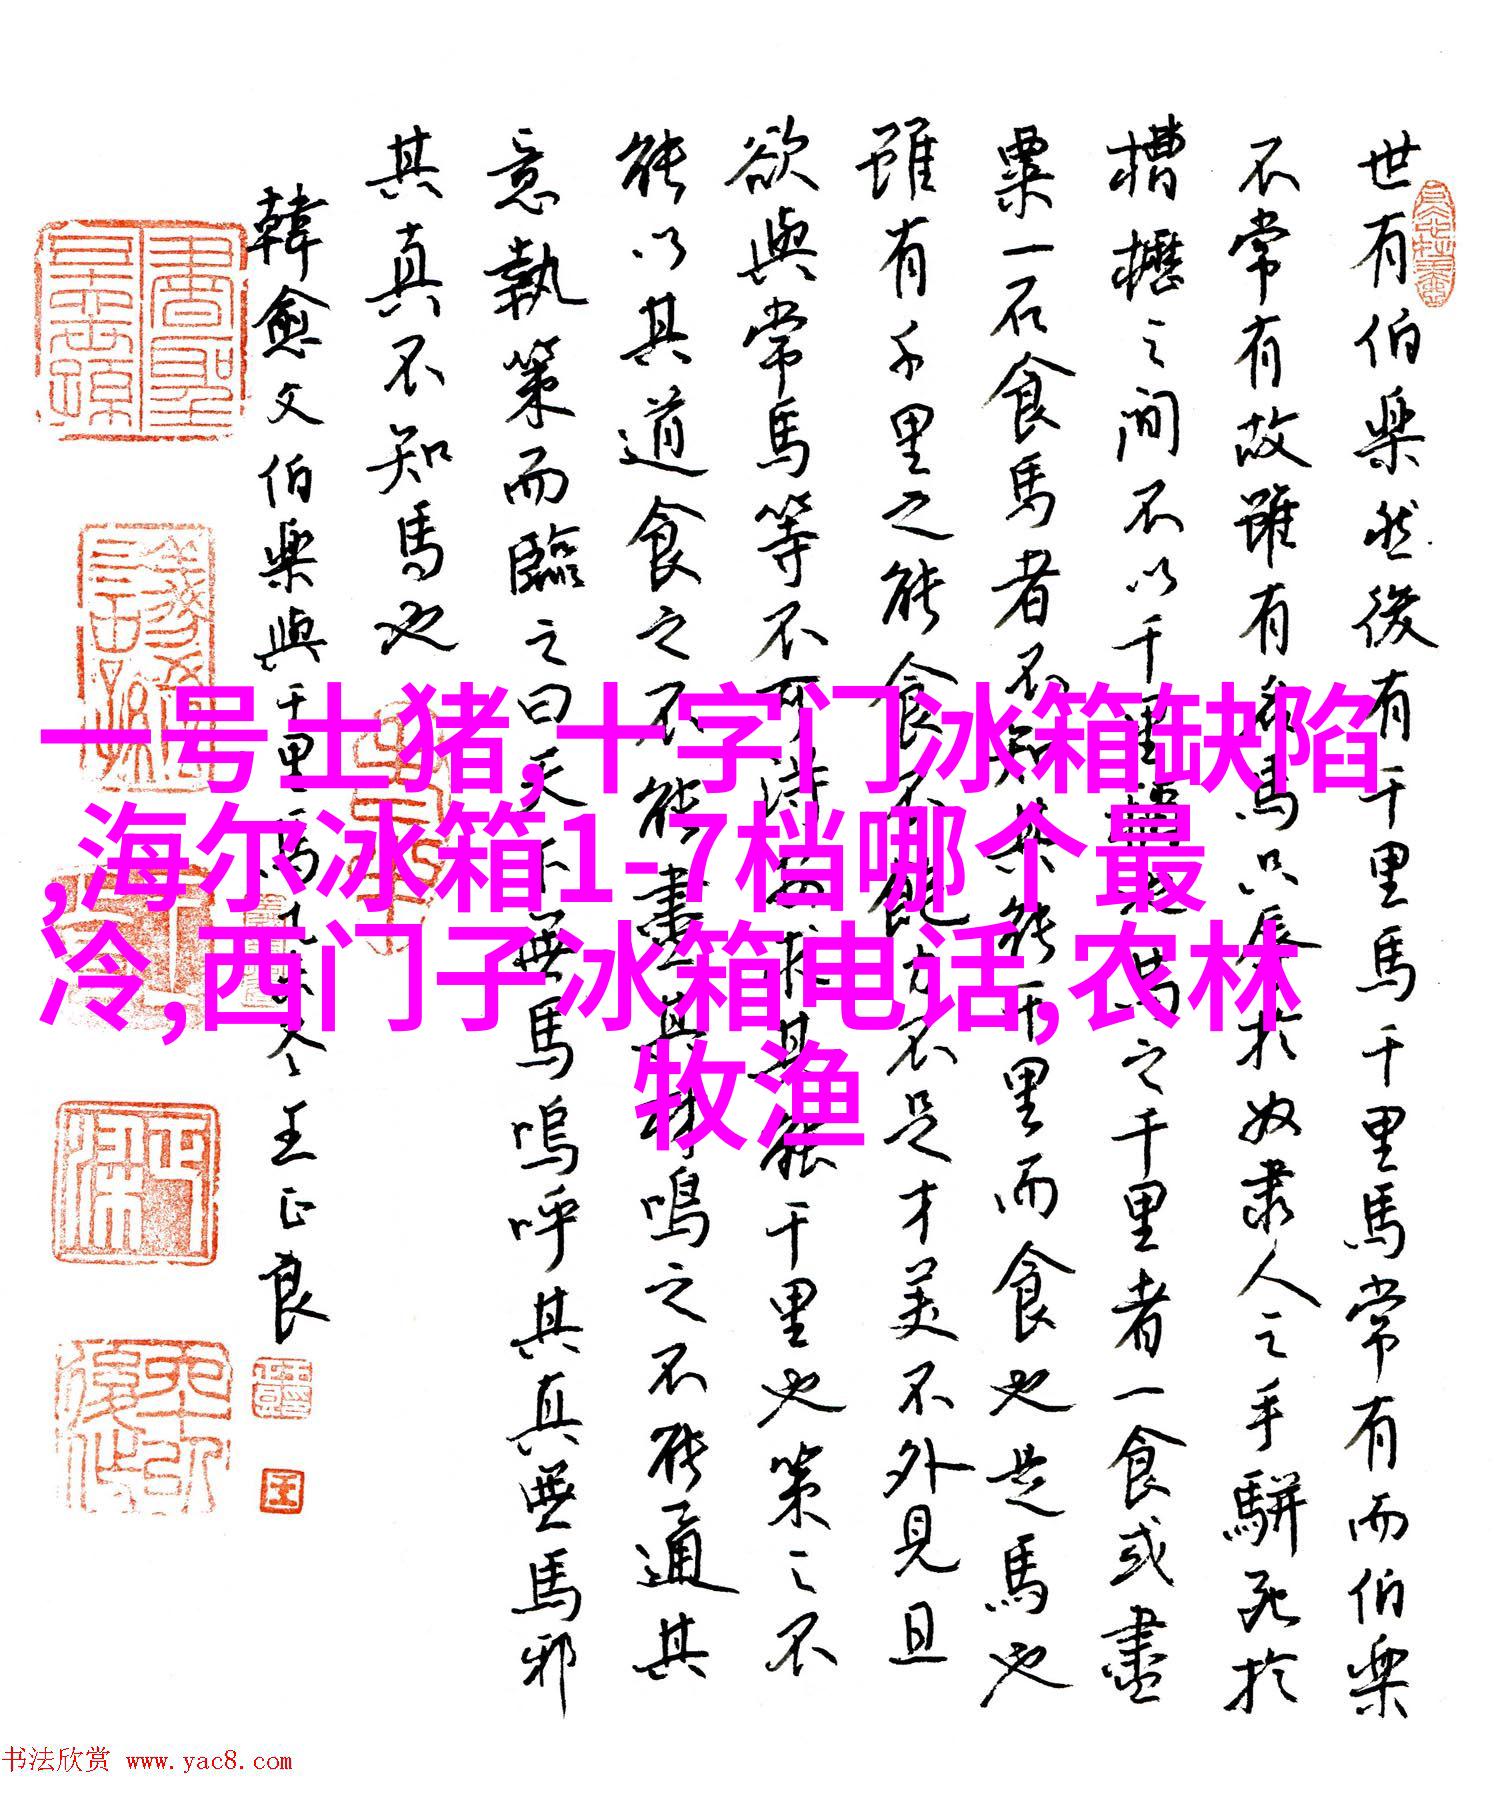 世有伯樂然後有千里馬千里馬常有而伯樂
不常有故雖有名馬只辱於奴隸人之手駢死於
槽櫪之间不以千里稱也馬之千里者一食或盡
粟一石食馬者不知其能千里而食也是馬也
雖有千里之能食不飽力不足才美不外見且
欲與常馬等不可得安求其能千里也策之不
能以其道食之不能盡其材鳴之不能通其
意執策而臨之曰天下無馬嗚呼其真無馬邪
其真不知馬也
韓愈文伯樂與千里馬冬王正良
一号土猪,十字门冰箱缺陷
,海尔冰箱1-7档哪个最
冷,西门子冰箱电话,农林
牧渔
书法欣赏 www.yac8.com